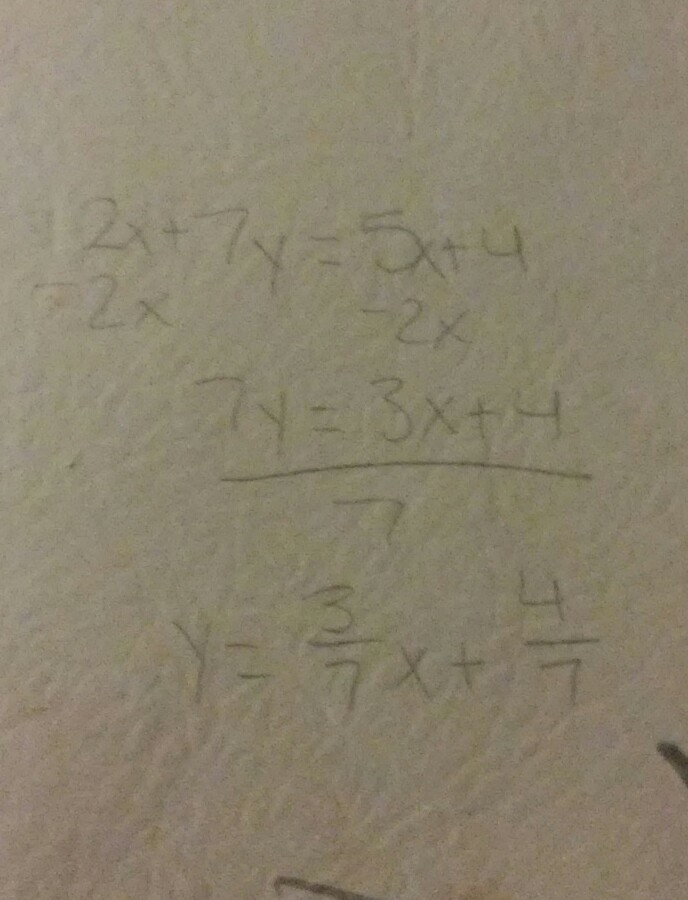 2x+7y=5x+4
-2x -2x
7y=3x+4
7
y=3/7x+4/7